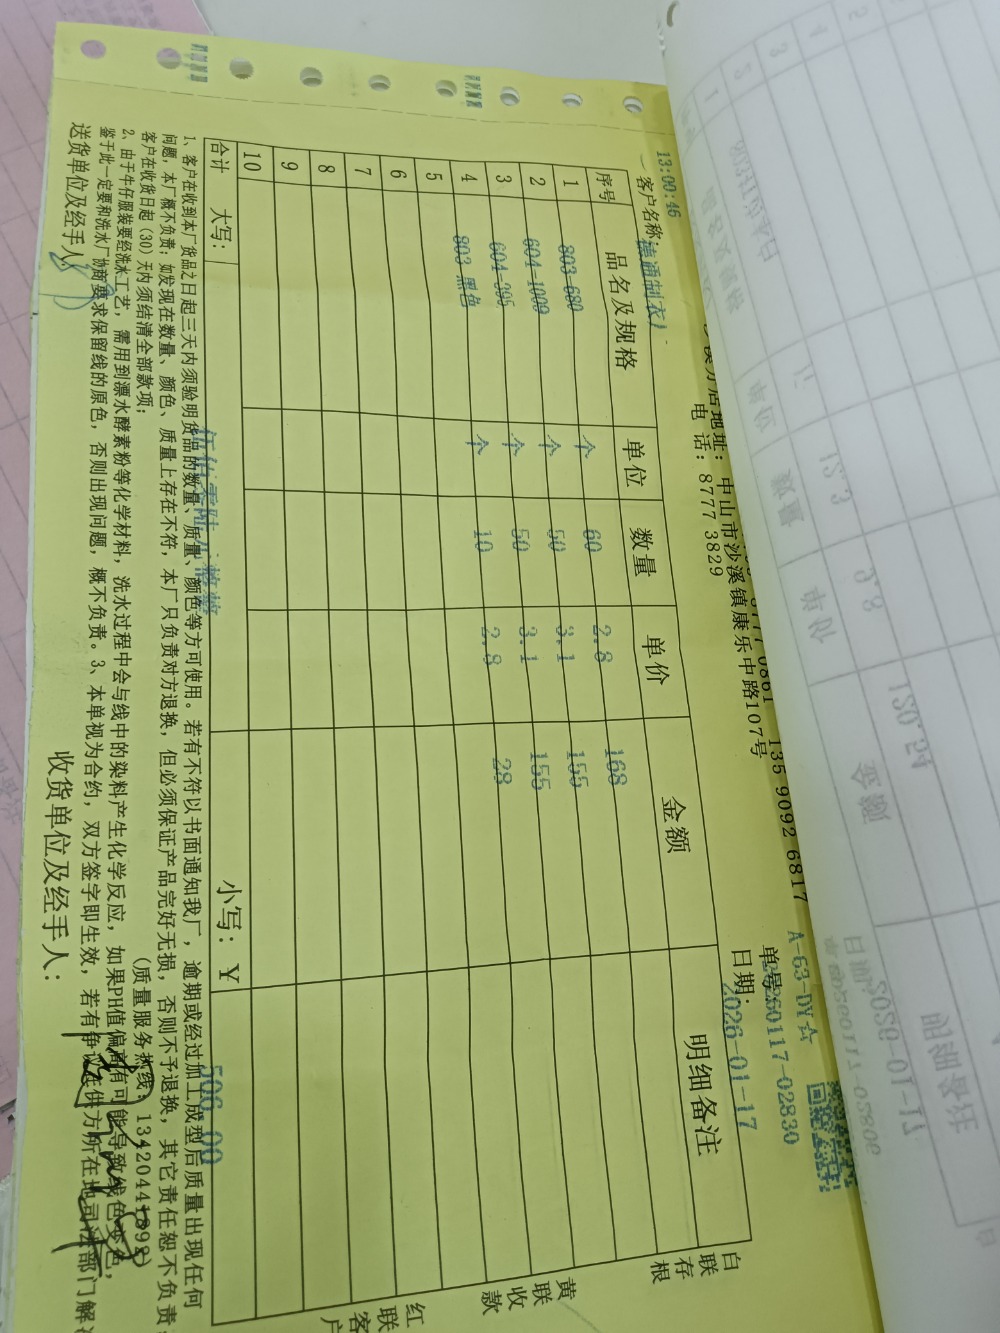 135 9092 6817 A-63-DY-A
地址：中山市沙溪镇康乐中路107号
电 话：8777 3829
单号:20260117-02830
日期：2026-01-17
13:00:46
客户名称：德通制衣厂
序号 品名及规格 单位 数量 单价 金额 明细备注
1 803-680 个 60 2.8 168
2 604-1009 个 50 3.1 155
3 604-395 个 50 3.1 155
4 803-黑色 个 10 2.8 28
5
6
7
8
9
10
合计 大写： 伍佰零陆元整 小写：￥ 506.00
1、客户在收到本厂货品之日起三天内须验明货品的数量、质量、颜色等方可使用。若有不符以书面通知我厂，逾期或经过加工成型后质量出现任何
问题，本厂概不负责；如发现在数量、颜色、质量上存在不符，本厂只负责对方退换，但必须保证产品完好无损，否则不予退换，其它责任恕不负责
客户在收货日起（30）天内须结清全部款项；
(质量服务热线：13420441898)
2、由于牛仔服装要经洗水工艺，需用到漂水酵素粉等化学材料，洗水过程中会与线中的染料产生化学反应，如果PH值偏高有可能导致线色变色，
鉴于此一定要和洗水厂协商要求保留线的原色，否则出现问题，概不负责。3、本单视为合约，双方签字即生效，若有争议在供方所在地司法部门解
送货单位及经手人
收货单位及经手人：
白联存根
黄联收款
红联客户